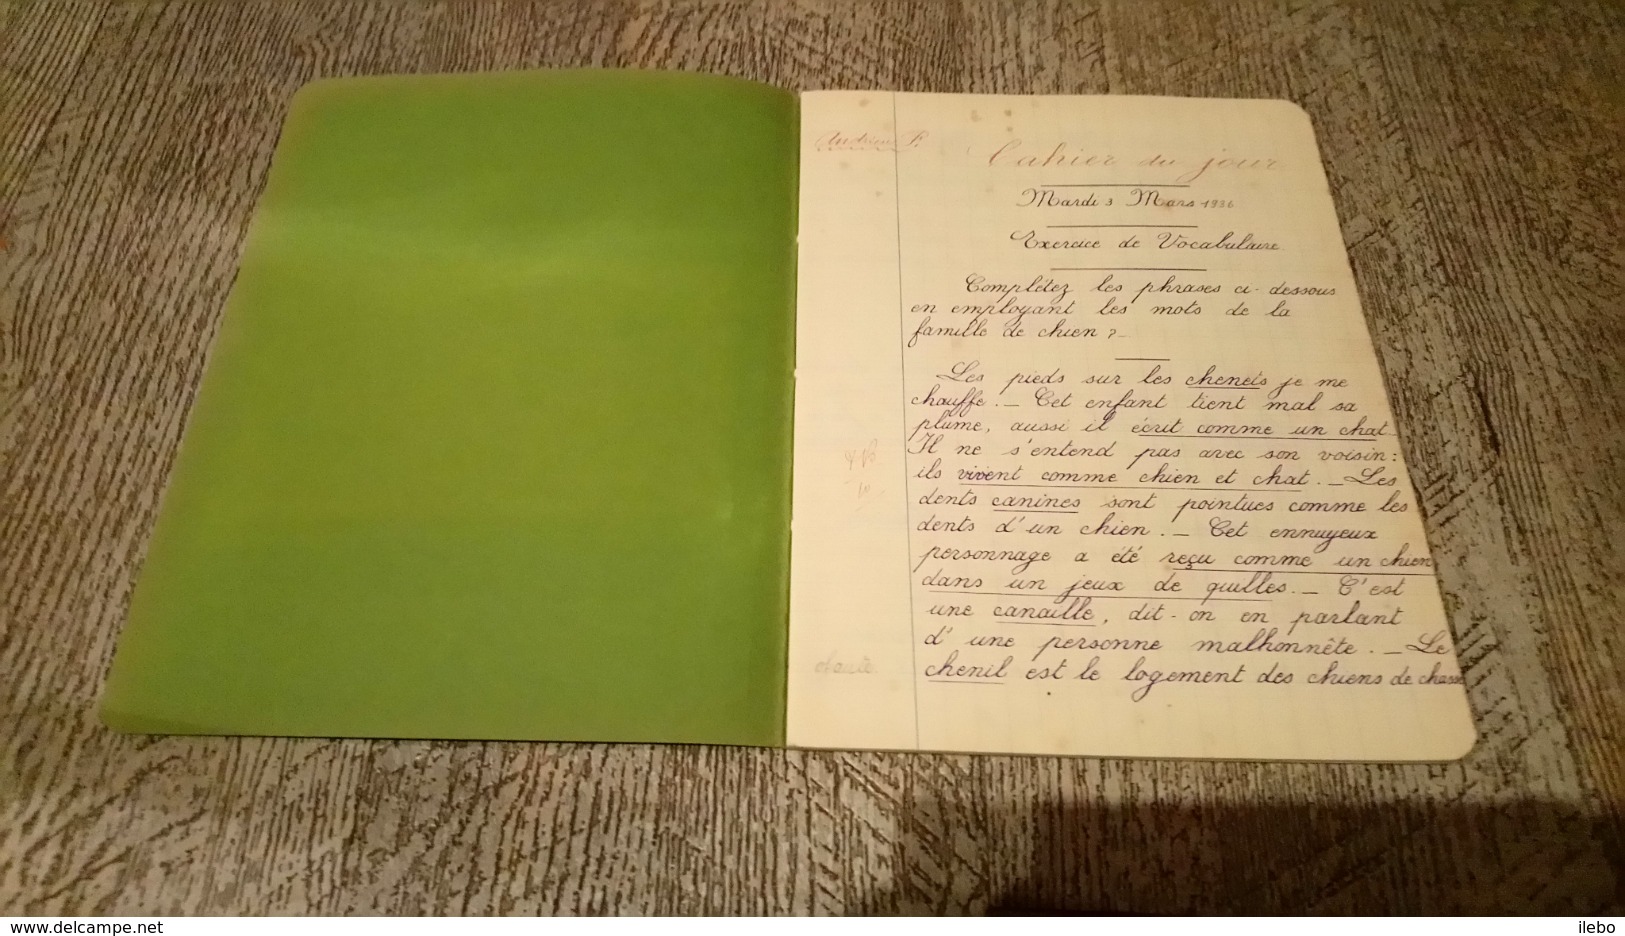 Cahier du jour
Mardi 3 Mars 1936
Exercice de Vocabulaire
Complétez les phrases ci-dessous
en employant les mots de la
famille de chien ? _
Les pieds sur les chenets je me
chauffe. _ Cet enfant tient mal sa
plume, aussi il écrit comme un chat _
Il ne s'entend pas avec son voisin :
ils vivent comme chien et chat. _ Les
dents canines sont pointues comme les
dents d'un chien. _ Cet ennuyeux
personnage a été reçu comme un chien
dans un jeux de quilles. _ C'est
une canaille, dit-on en parlant
d'une personne malhonnête. _ Le
chenil est le logement des chiens de chasse
www.delcampe.net
ilebo